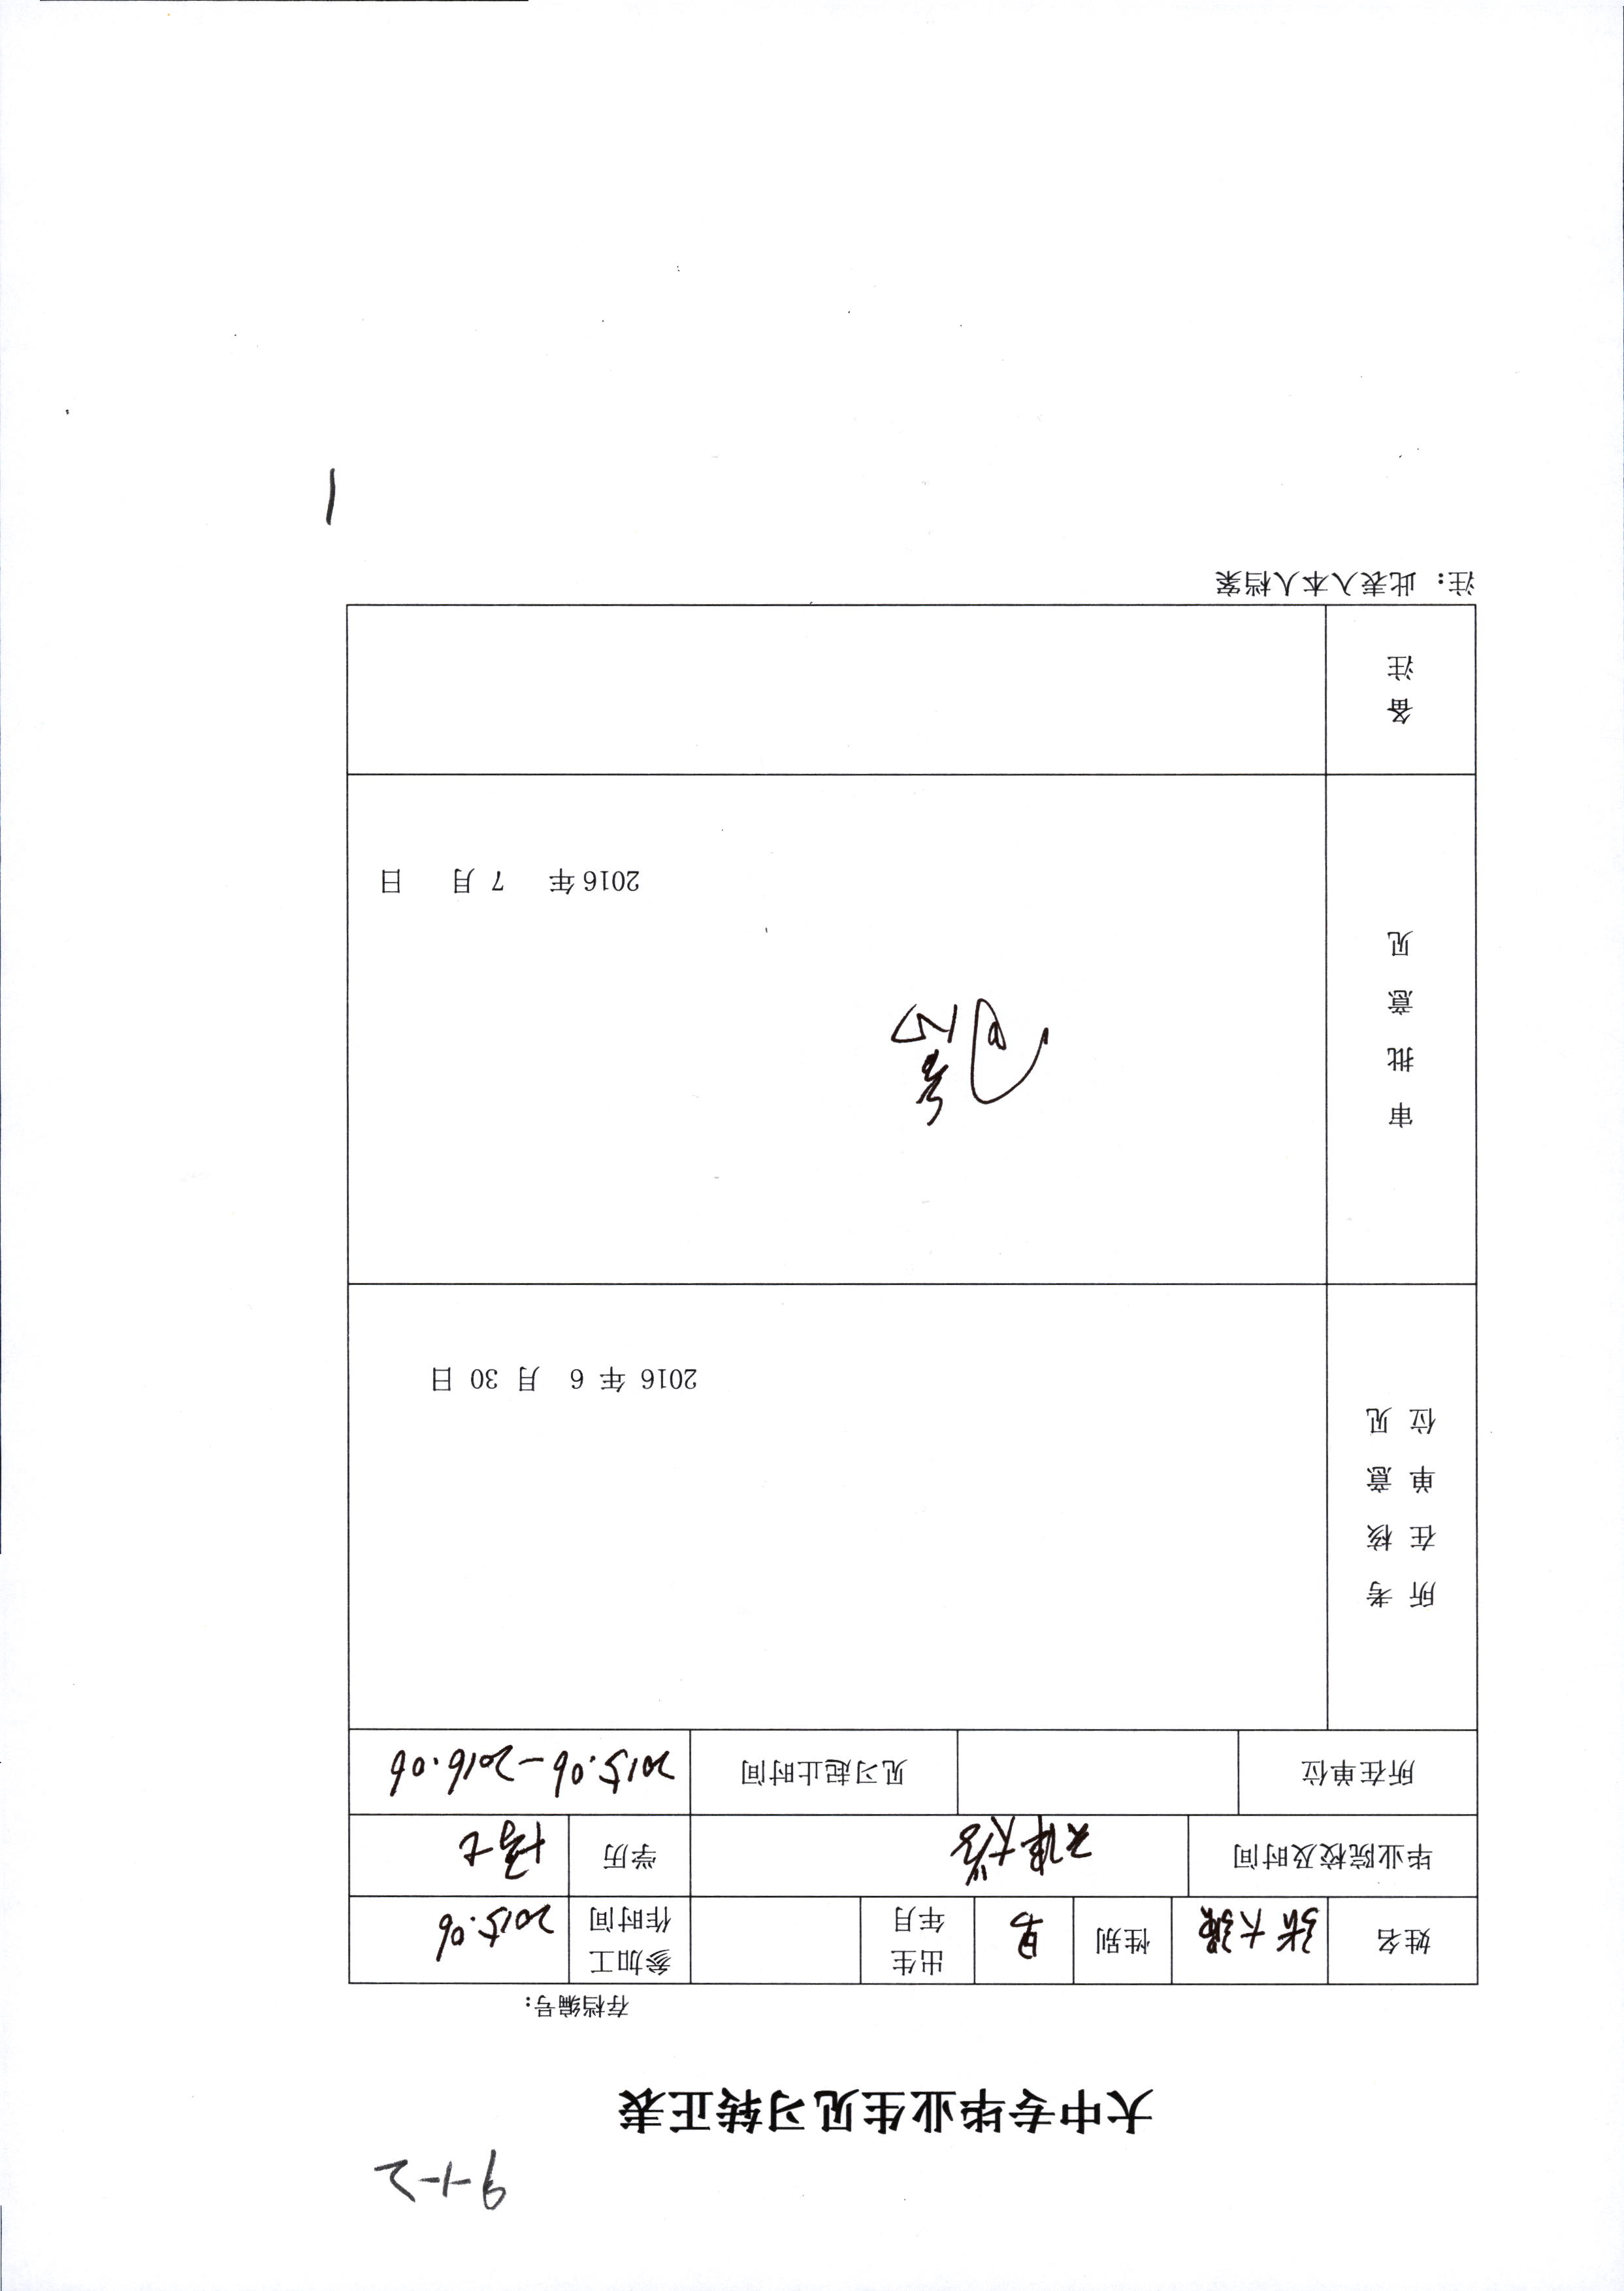 9-1-2
大中专毕业生见习转正表
存档编号：
姓名 张大骥 性别 男 出生年月 参加工作时间 2015.06
毕业院校及时间 天津大学 学历 博士
所在单位 见习起止时间 2015.06-2016.06
所在单位考核意见
2016 年 6 月 30 日
审批意见
同意
2016 年 7 月 日
备注
注：此表入本人档案
1